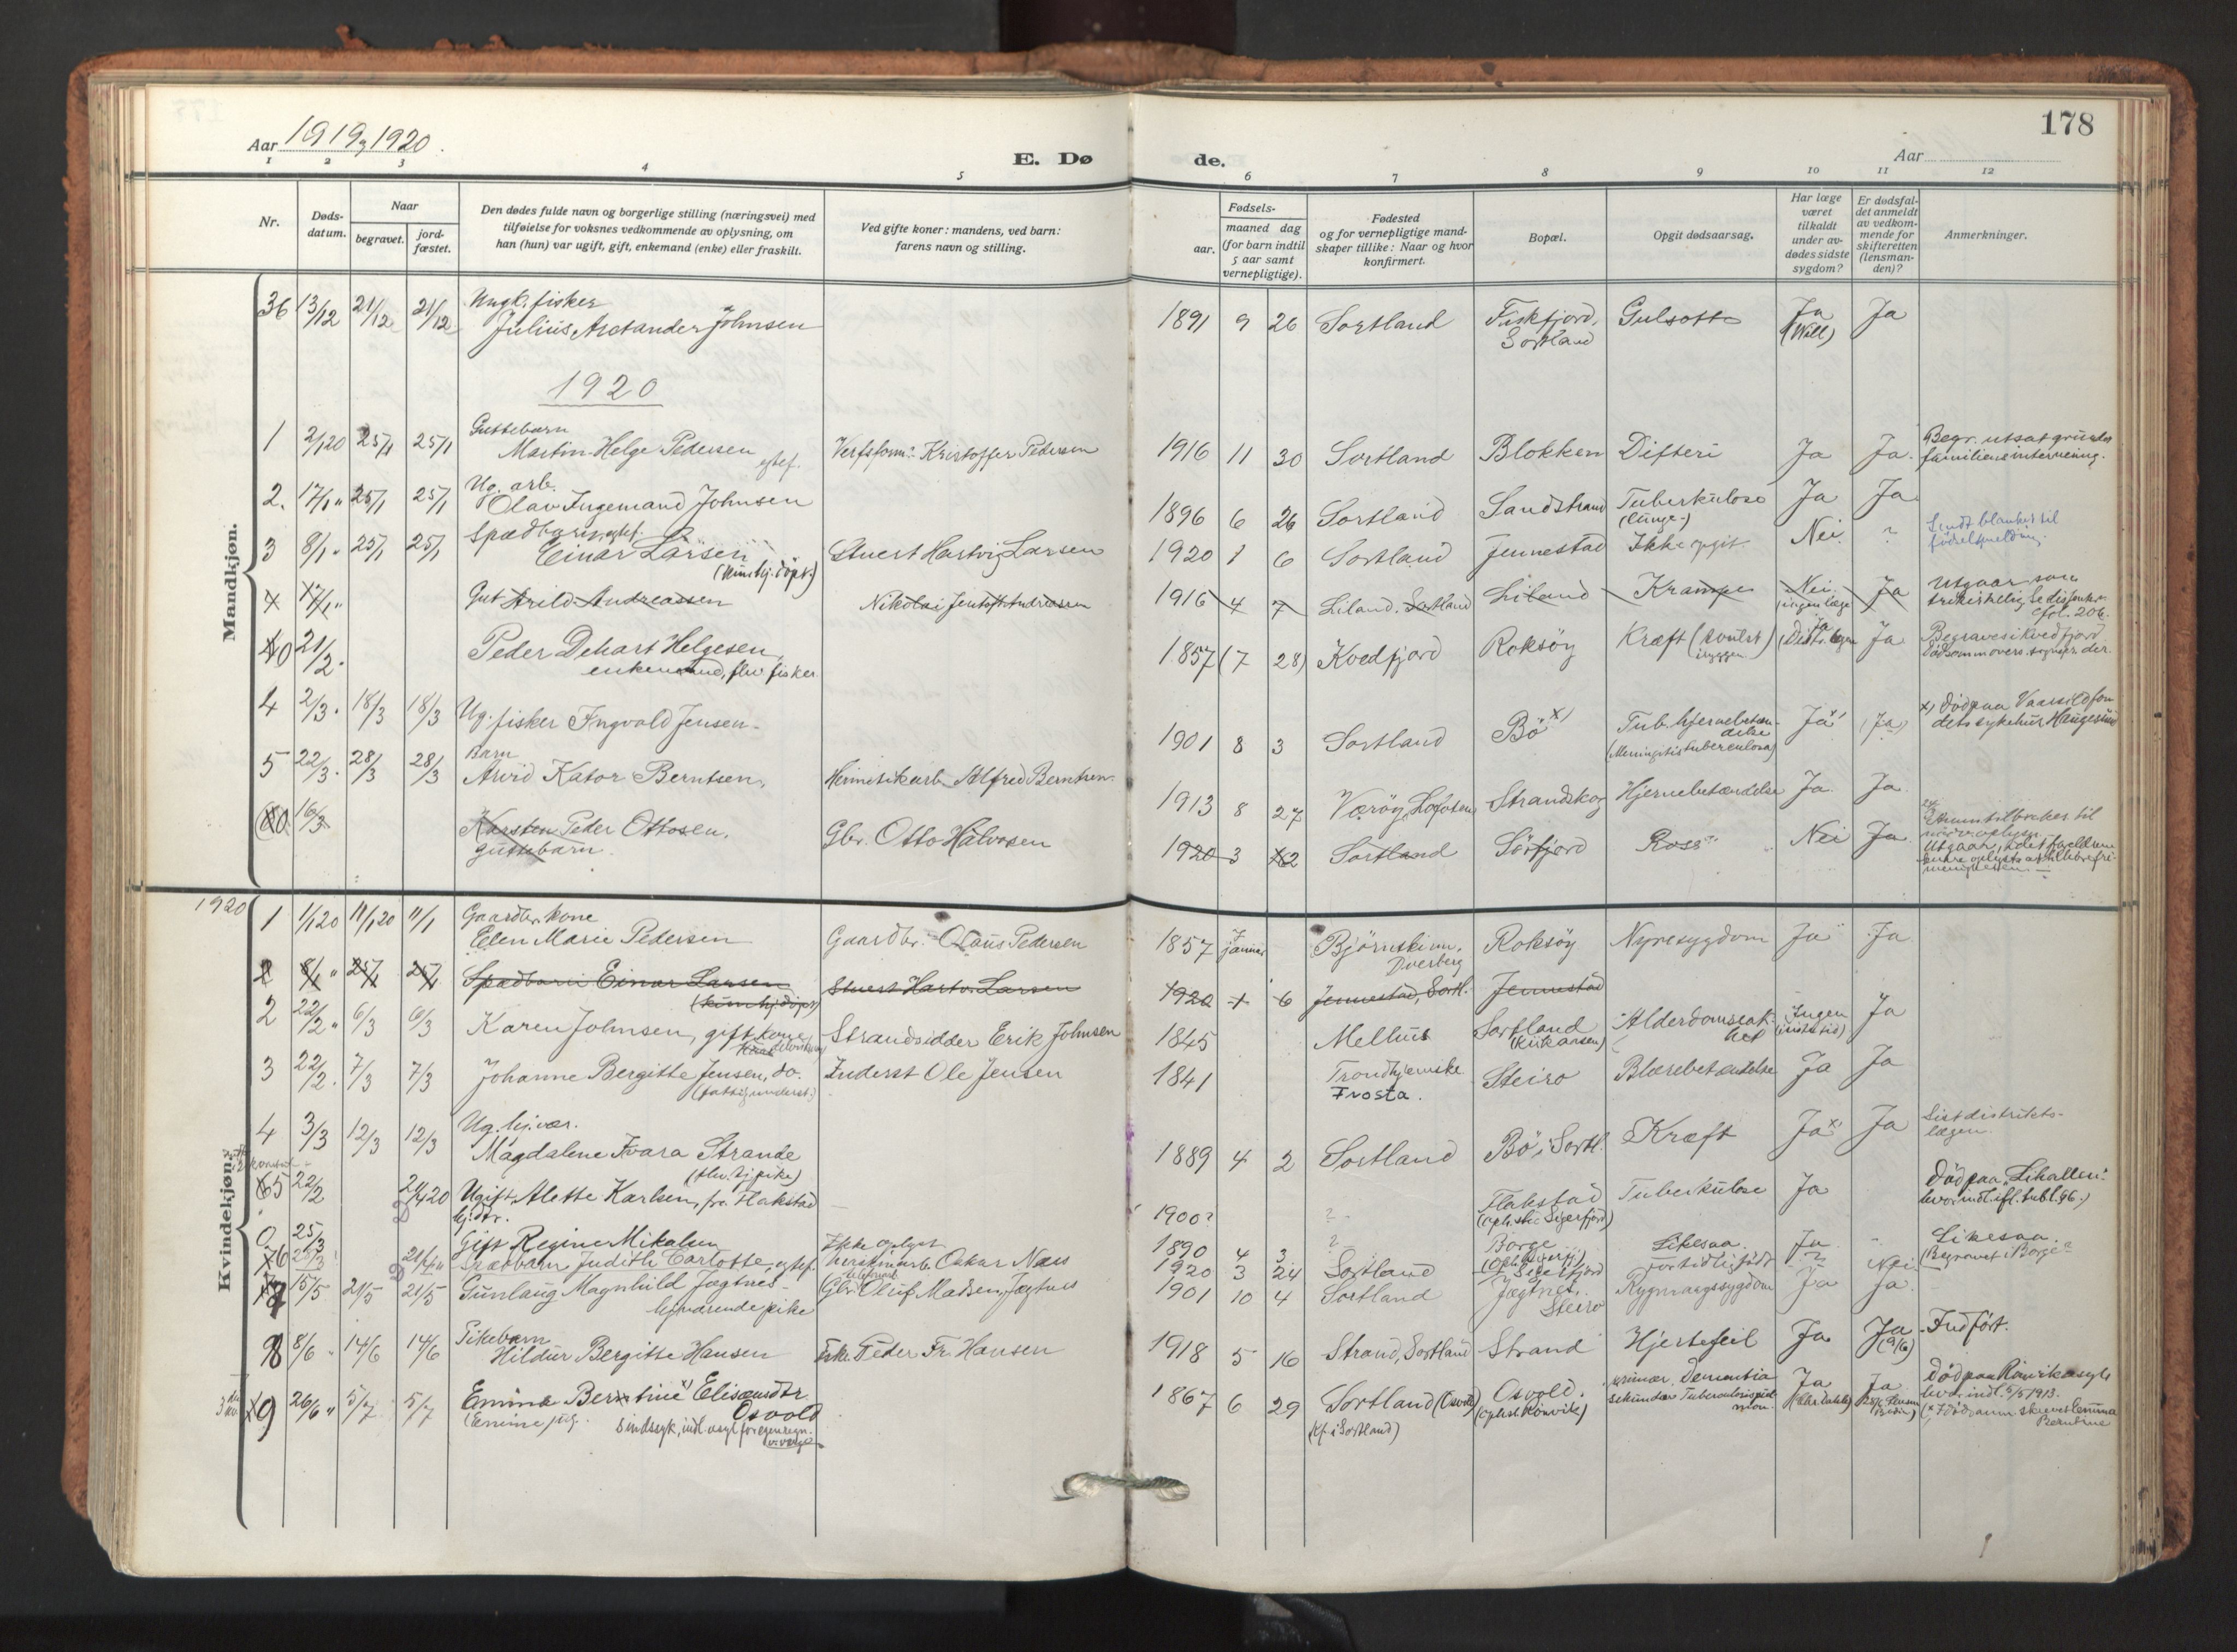 178
Aar 1919, 1920.
E. Døde.
Aar
1 2 3 4 5 6 7 8 9 10 11 12
Nr.
Døds-
datum.
Naar
begravet.
jord-
fæstet.
Den dødes fulde navn og borgerlige stilling (næringsvei) med
tilføielse for voksnes vedkommende av oplysning, om
han (hun) var ugift, gift, enkemand (enke) eller fraskilt.
Ved gifte koner: mandens, ved barn:
farens navn og stilling.
Fødsels-
aar.
maaned dag
(for barn indtil
5 aar samt
vernepligtige).
Fødested
og for vernepligtige mand-
skaper tillike: Naar og hvor
konfirmert.
Bopæl.
Opgit dødsaarsag.
Har læge
været
tilkaldt
under av-
dødes sidste
sygdom?
Er dødsfal-
det anmeldt
av vedkom-
mende for
skifteretten
(lensman-
den)?
Anmerkninger.
Mandkjøn.
36 13/12 21/12 21/12 Ungk. fisker
Julius Arctander Johnsen 1891 9 26 Sortland Fiskfjord, Sortland Gulsott Ja (Wall) Ja
1920
1 2/1 20 25/1 25/1 Guttebarn
Martin Helge Pedersen egtef. Verfsform. Kristoffer Pedersen 1916 11 30 Sortland Blokken Difteri Ja Ja. Begr. utsat grundet
familiens internering.
2. 17/1 " 25/1 25/1 Ug. arb.
Olav Ingemand Johnsen 1896 6 26 Sortland Sandstrand Tuberkulose (lunge-) Ja Ja
3 8/1 " 25/1 25/1 Spædbarn, egtef.
Einar Larsen (hjemmedøpt.) Stuert Hartvig Larsen 1920 1 6 Sortland Jennestad Ikke opgit Nei ? Sendt blanket til
fødselsmelding.
4 17/1 " Gut Arild Andreassen Nikolai Jentoft Andreassen 1916 4 7 Liland, Sortland Liland Krampe Nei (ingen læge) Ja Utgaar som
fol. 206.
0 21/2 . Peder Dehart Helgesen,
enkemand, flv fisker 1857 (7 28) Kvedfjord Roksöy Kræft (svulst i ryggen) Ja Distr. lægen Ja Begraves i Kvedfjord.
4 2/3 . 18/3 18/3 Ug. fisker Ingvald Jensen 1901 8 3 Sortland Bö x) Tub. hjernebetændelse
(Meningitis tuberculosa) Ja (Ja) x) Död paa Vaarsildfon-
dets sykehus Haugesund
5 22/3 . 28/3 28/3 Barn
Arvid Kator Berntsen, Hermetikarb. Alfred Berntsen 1913 8 27 Værøy, Lofoten Strandskog Hjernebetændelse Ja. Ja.
0 16/3 Karsten Peder Ottosen,
guttebarn. Gbr. Otto Halvorsen 1920 3 2 Sortland Sörfjord Ross Nei Ja
Kvindekjøn.
1920
1 1/1 20 11/1 20 11/1 Gaardbr. kone
Elen Marie Pedersen Gaardbr. Olaus Pedersen 1857 7 januar Björnskinn, Dverberg Roksöy Nyresygdom Ja Ja
2 8/1 " 25/1 25/1 Spædbarn Einar Larsen Stuert Hartv. Larsen 1920 1 6 Jennestad, Sortl. Jennestad
2 22/2 " 6/3 6/3 Karen Johnsen, gift kone Strandsidder Erik Johnsen 1845 Melhus Sortland Alderdomssvakhet Ingen (i sidste tid) Ja
3 22/2 . 7/3 7/3 Johanne Bergitte Jensen, do.
(fattigunderst.) Inderst Ole Jensen 1841 Trondhjemske
Frosta. Steiro Blærebetændelse Ja Ja
4 3/3 12/3 12/3 Ug. hj.vær.
Magdalene Ivara Strande
(flv. tj.pike) 1889 4 2 Sortland Bö i Sortl. Kræft Ja x) Ja Sist distrikts-
lægen
5 22/2 21/4 20 Ugift Alette Karlsen, fra Flakstad
hj.dtr. 1900? ? Flakstad (oph.st. Sigerfjord) Tuberkulose Ja Död paa "Lihallen"
0 25/3 Gift Regine Mikalsen Ikke oplyst 1890 4 3 ? Borge Likesaa. Ja Likesaa.
(Begravet i Borge?
6 25/3 21/4 " Spædbarn Judith Carlotte, egtef. Oskar Næss 1920 3 24 Sortland Sigerfjord For tidlig født ? Nei
7 15/5 21/5 21/5 Gunlaug Magnhild Jægtnes
hj.værende pike Gbr. Oluf Madsen Jægtnes 1901 10 4 Sortland Jægtnes, Steiro Rygmargssygdom Ja Ja.
8 8/6 " 14/6 14/6 Pikebarn
Hildur Bergitte Hansen Fisk. Peder Fr. Hansen 1918 5 16 Strand, Sortland Strand Hjertefeil Ja Ja (9/6) Indført.
9 26/6 " 5/7 5/7 Emma Berntine x) Elisæusdtr. Osvold
sindssyk, indl. asyl for egen regn. 1867 6 29 Sortland (Osvold)
(Kf. i Sortland) Osvold. (oph.st. Rönvik) primær Dementia
sekundær Tuberculosis pulmon. Ja Ja Död paa Rönvik asyl
hvor indl. 9/5 1913.
Berntine